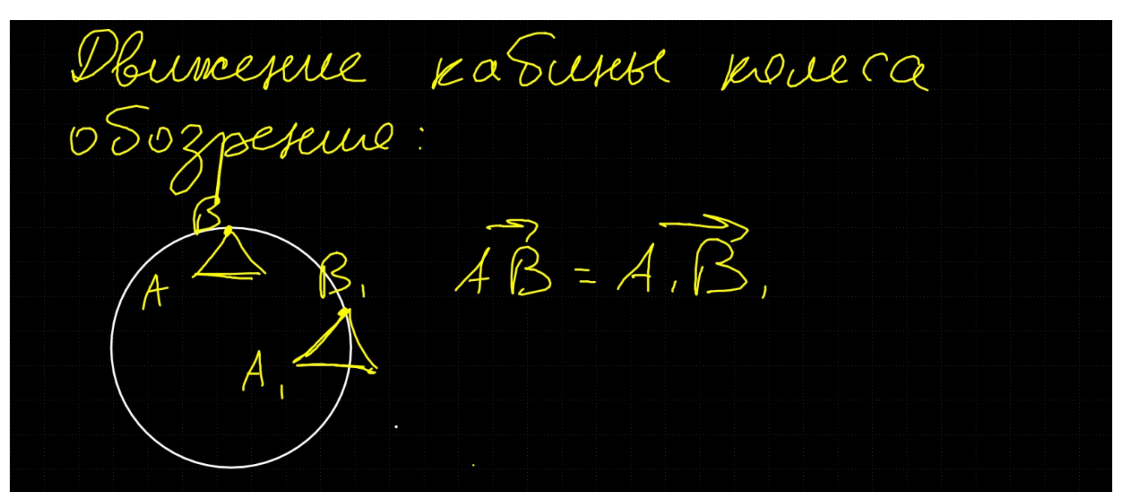 Движение кабины колеса
обозрение:
B
A
B₁
A₁
→AB = →A₁B₁